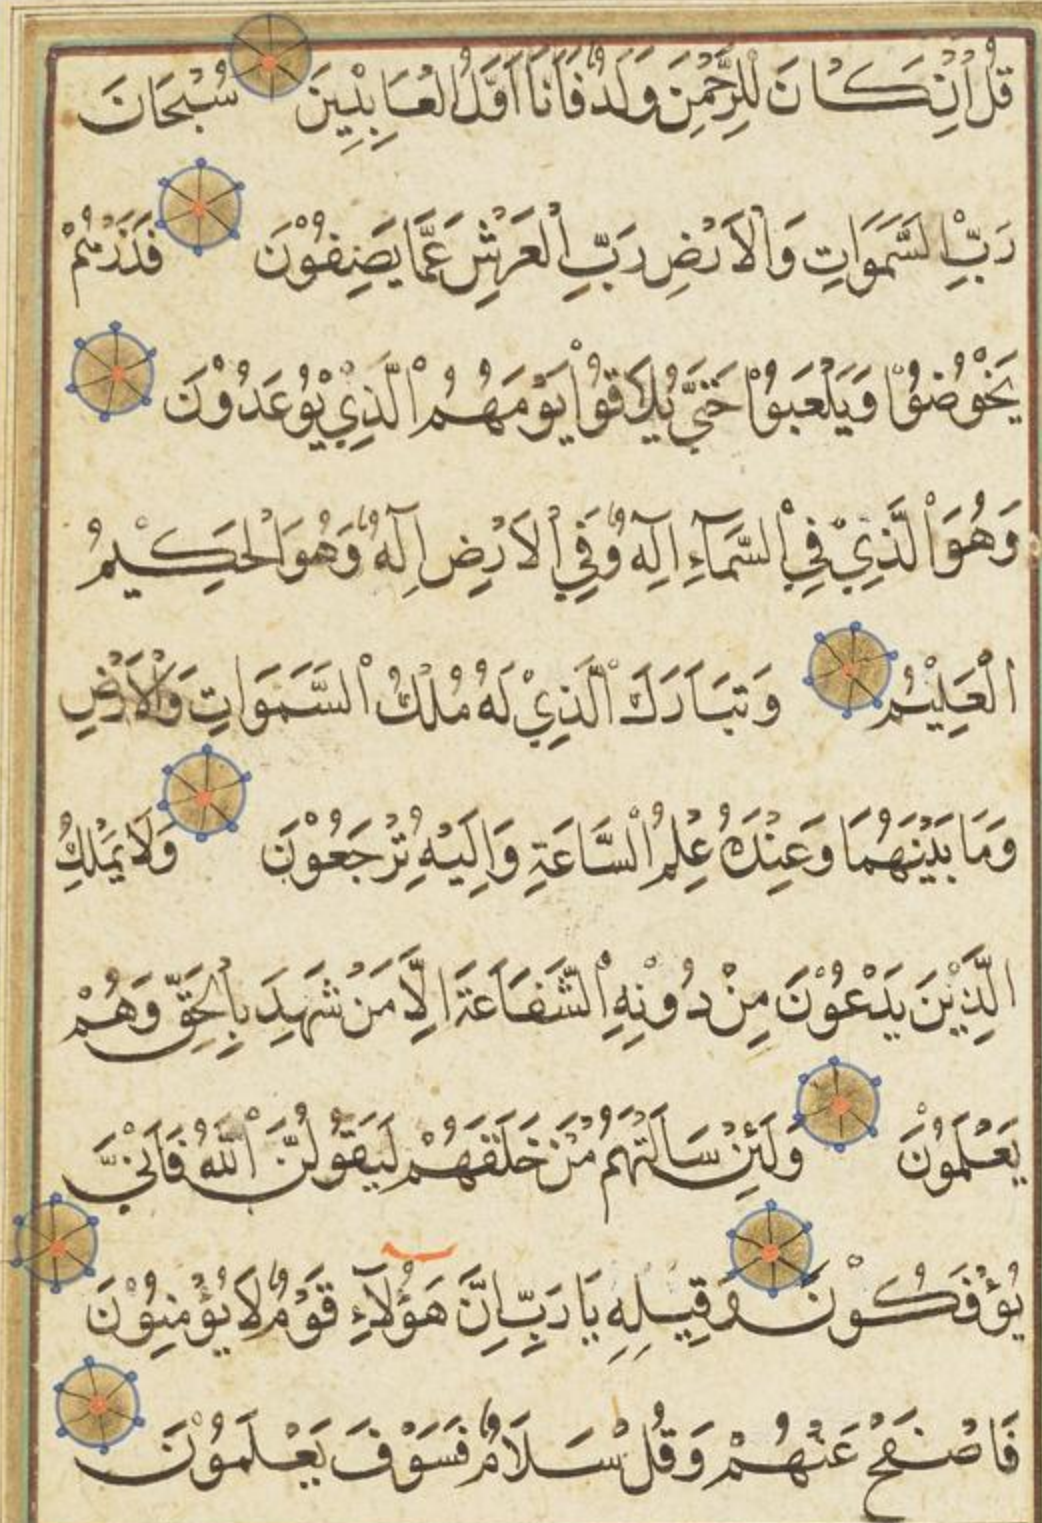 قُلْ اِنْ كَانَ لِلرَّحْمٰنِ وَلَدٌ فَاَنَا اَوَّلُ الْعَابِدِيْنَ سُبْحَانَ
رَبِّ السَّمَوَاتِ وَالْاَرْضِ رَبِّ الْعَرْشِ عَمَّا يَصِفُوْنَ فَذَرْهُمْ
يَخُوْضُوْا وَيَلْعَبُوْا حَتّٰى يُلَاقُوْا يَوْمَهُمُ الَّذِيْ يُوْعَدُوْنَ
وَهُوَ الَّذِيْ فِي السَّمَآءِ اِلٰهٌ وَفِي الْاَرْضِ اِلٰهٌ وَهُوَ الْحَكِيْمُ
الْعَلِيْمُ وَتَبَارَكَ الَّذِيْ لَهُ مُلْكُ السَّمَوَاتِ وَالْاَرْضِ
وَمَا بَيْنَهُمَا وَعِنْدَهُ عِلْمُ السَّاعَةِ وَاِلَيْهِ تُرْجَعُوْنَ وَلَا يَمْلِكُ
الَّذِيْنَ يَدْعُوْنَ مِنْ دُوْنِهِ الشَّفَاعَةَ اِلَّا مَنْ شَهِدَ بِالْحَقِّ وَهُمْ
يَعْلَمُوْنَ وَلَئِنْ سَاَلْتَهُمْ مَنْ خَلَقَهُمْ لَيَقُوْلُنَّ اللّٰهُ فَاَنّٰى
يُؤْفَكُوْنَ وَقِيْلِهِ يَا رَبِّ اِنَّ هَؤُلَآءِ قَوْمٌ لَا يُؤْمِنُوْنَ
فَاصْفَحْ عَنْهُمْ وَقُلْ سَلَامٌ فَسَوْفَ يَعْلَمُوْنَ